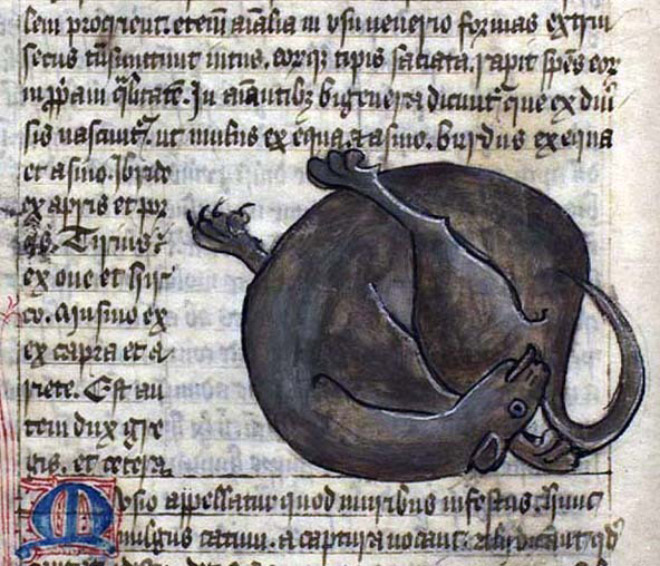 etem aialia in usu uenerio formas extrin
secus tnsmittunt intus. eorq; tipis satiata. rapit spes eor
in ppam qlitate. In aiantib; bigenera dicunt que ex diu
sis nascunt. ut mulus ex equa et asino. burdus ex equa
et asino. Ibride
ex apris et por
Tirius
ex oue et hir
co. Musmo ex
ex capra et a
riete. Est au
tem dux gre
gis. et cetera.
Musio appellatur quod muribus infestus. hunc
uulgus catum. a captura uocant. alii dicunt qd